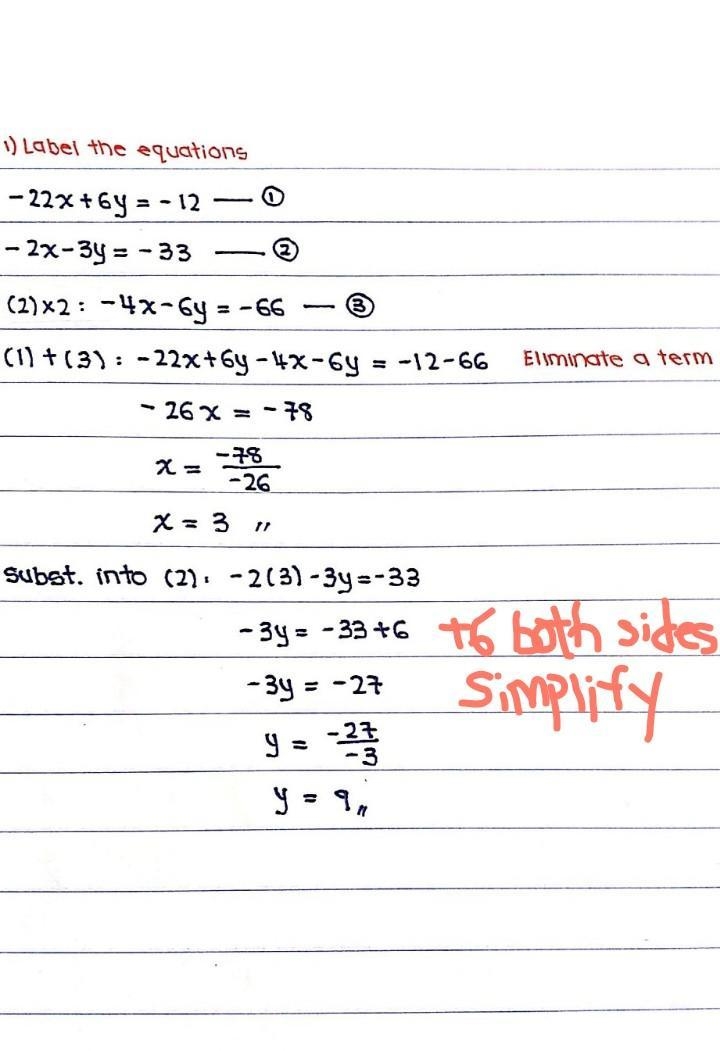 1) Label the equations
-22x+6y = -12 — ①
-2x-3y = -33 — ②
(2)×2: -4x-6y = -66 — ③
(1)+(3): -22x+6y-4x-6y = -12-66 Eliminate a term
-26x = -78
x = -78/-26
x = 3 〃
subst. into (2): -2(3)-3y=-33
-3y = -33+6 +6 both sides
-3y = -27 Simplify
y = -27/-3
y = 9〃